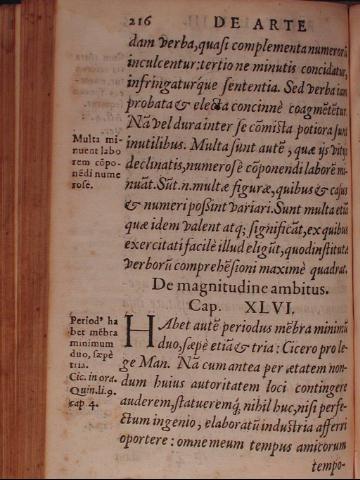 216 DE ARTE
dam verba, quasi complementa numerorũ
inculcentur: tertio ne minutis concidatur,
infringaturq́ue sententia. Sed verba iam
probata & electa concinnè coagmẽtẽtur.
Nã vel dura inter se cõmissa potiora sunt
inutilibus. Multa sunt autẽ, quæ ijs vitijs
declinatis, numerosè cõponendi laborẽ mi-
nuãt. Sũt. n. multæ figuræ, quibus & casus
& numeri possint variari. Sunt multa etiã
quæ idem valent atq; significãt, ex quibus
exercitati facilè illud eligũt, quod instituto
verborũ comprehẽsioni maximè quadrat.
Multa mi-
nuent labo
rem cõpo-
nẽdi nume
rose.
De magnitudine ambitus.
Cap. XLVI.
HAbet autẽ periodus mẽbra minimũ
duo, sæpè etiã & tria: Cicero pro le-
ge Man. Nã cum antea per ætatem non-
dum huius autoritatem loci contingere
auderem, statueremq́; nihil huc, nisi perfe-
ctum ingenio, elaboratũ industria afferri
oportere: omne meum tempus amicorum
tempo-
Periodꝰ ha
bet mẽbra
minimum
duo, sæpè
tria.
Cic. in ora.
Quin. li. 9.
cap 4.